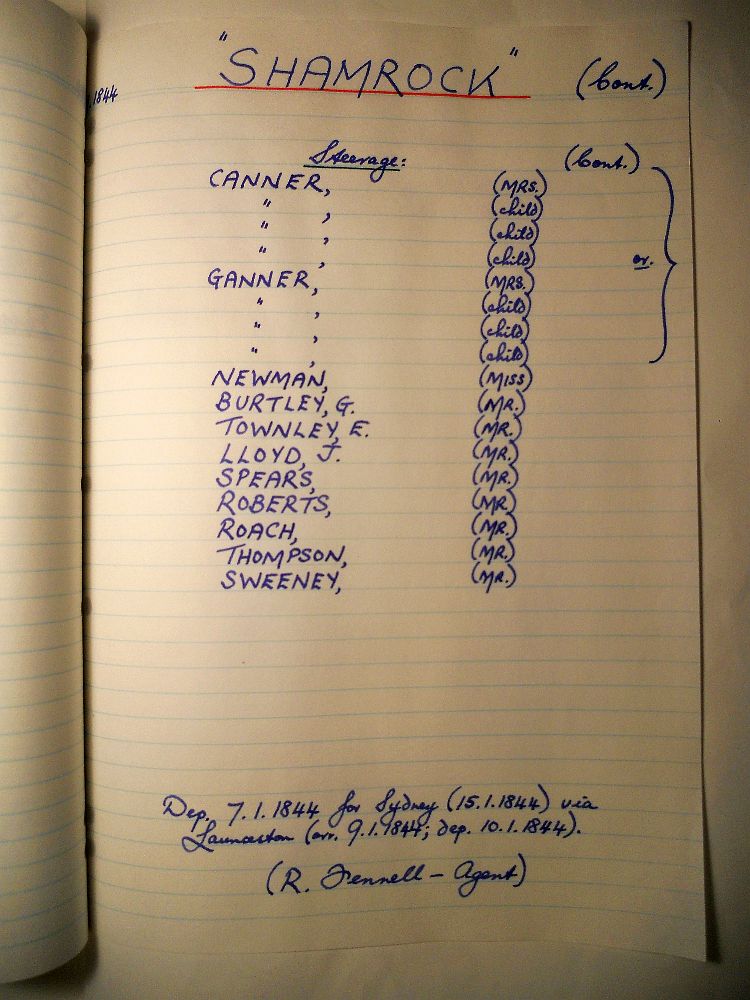 "SHAMROCK" (Cont.)
.1844
Steerage: (Cont.)
CANNER, (MRS.)
" , (child)
" , (child)
" , (child) or.
GANNER, (MRS.)
" , (child)
" , (child)
" , (child)
NEWMAN, (MISS)
BURTLEY, G. (MR.)
TOWNLEY, E. (MR.)
LLOYD, J. (MR.)
SPEARS, (MR.)
ROBERTS, (MR.)
ROACH, (MR.)
THOMPSON, (MR.)
SWEENEY, (MR.)
Dep. 7.1.1844 for Sydney (15.1.1844) via
Launceston (arr. 9.1.1844; dep. 10.1.1844).
(R. Fennell – Agent)